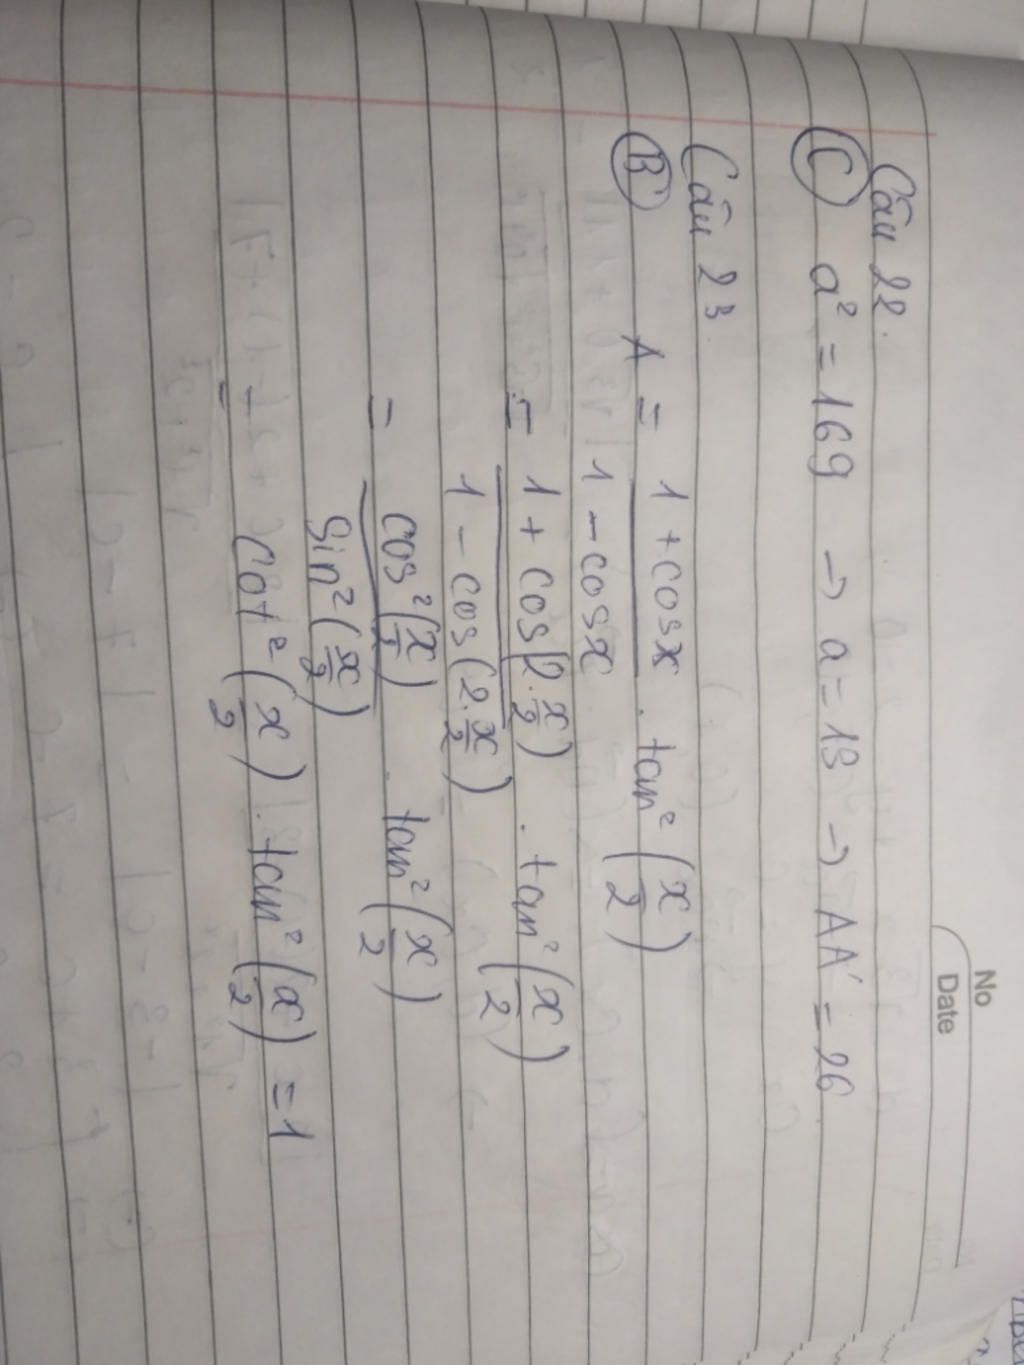 No
Date
Câu 22.
C a² = 169 → a = 13 → AA' = 26
Câu 23
B A = 1 + cosx / 1 - cosx . tan² (x/2)
= 1 + cos(2.x/2) / 1 - cos(2.x/2) . tan² (x/2)
= cos²(x/2) / Sin²(x/2) . tan² (x/2)
= Cot² (x/2) . tan² (x/2) = 1